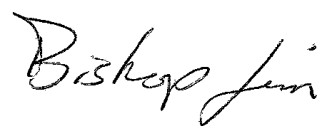 Bishop Jim